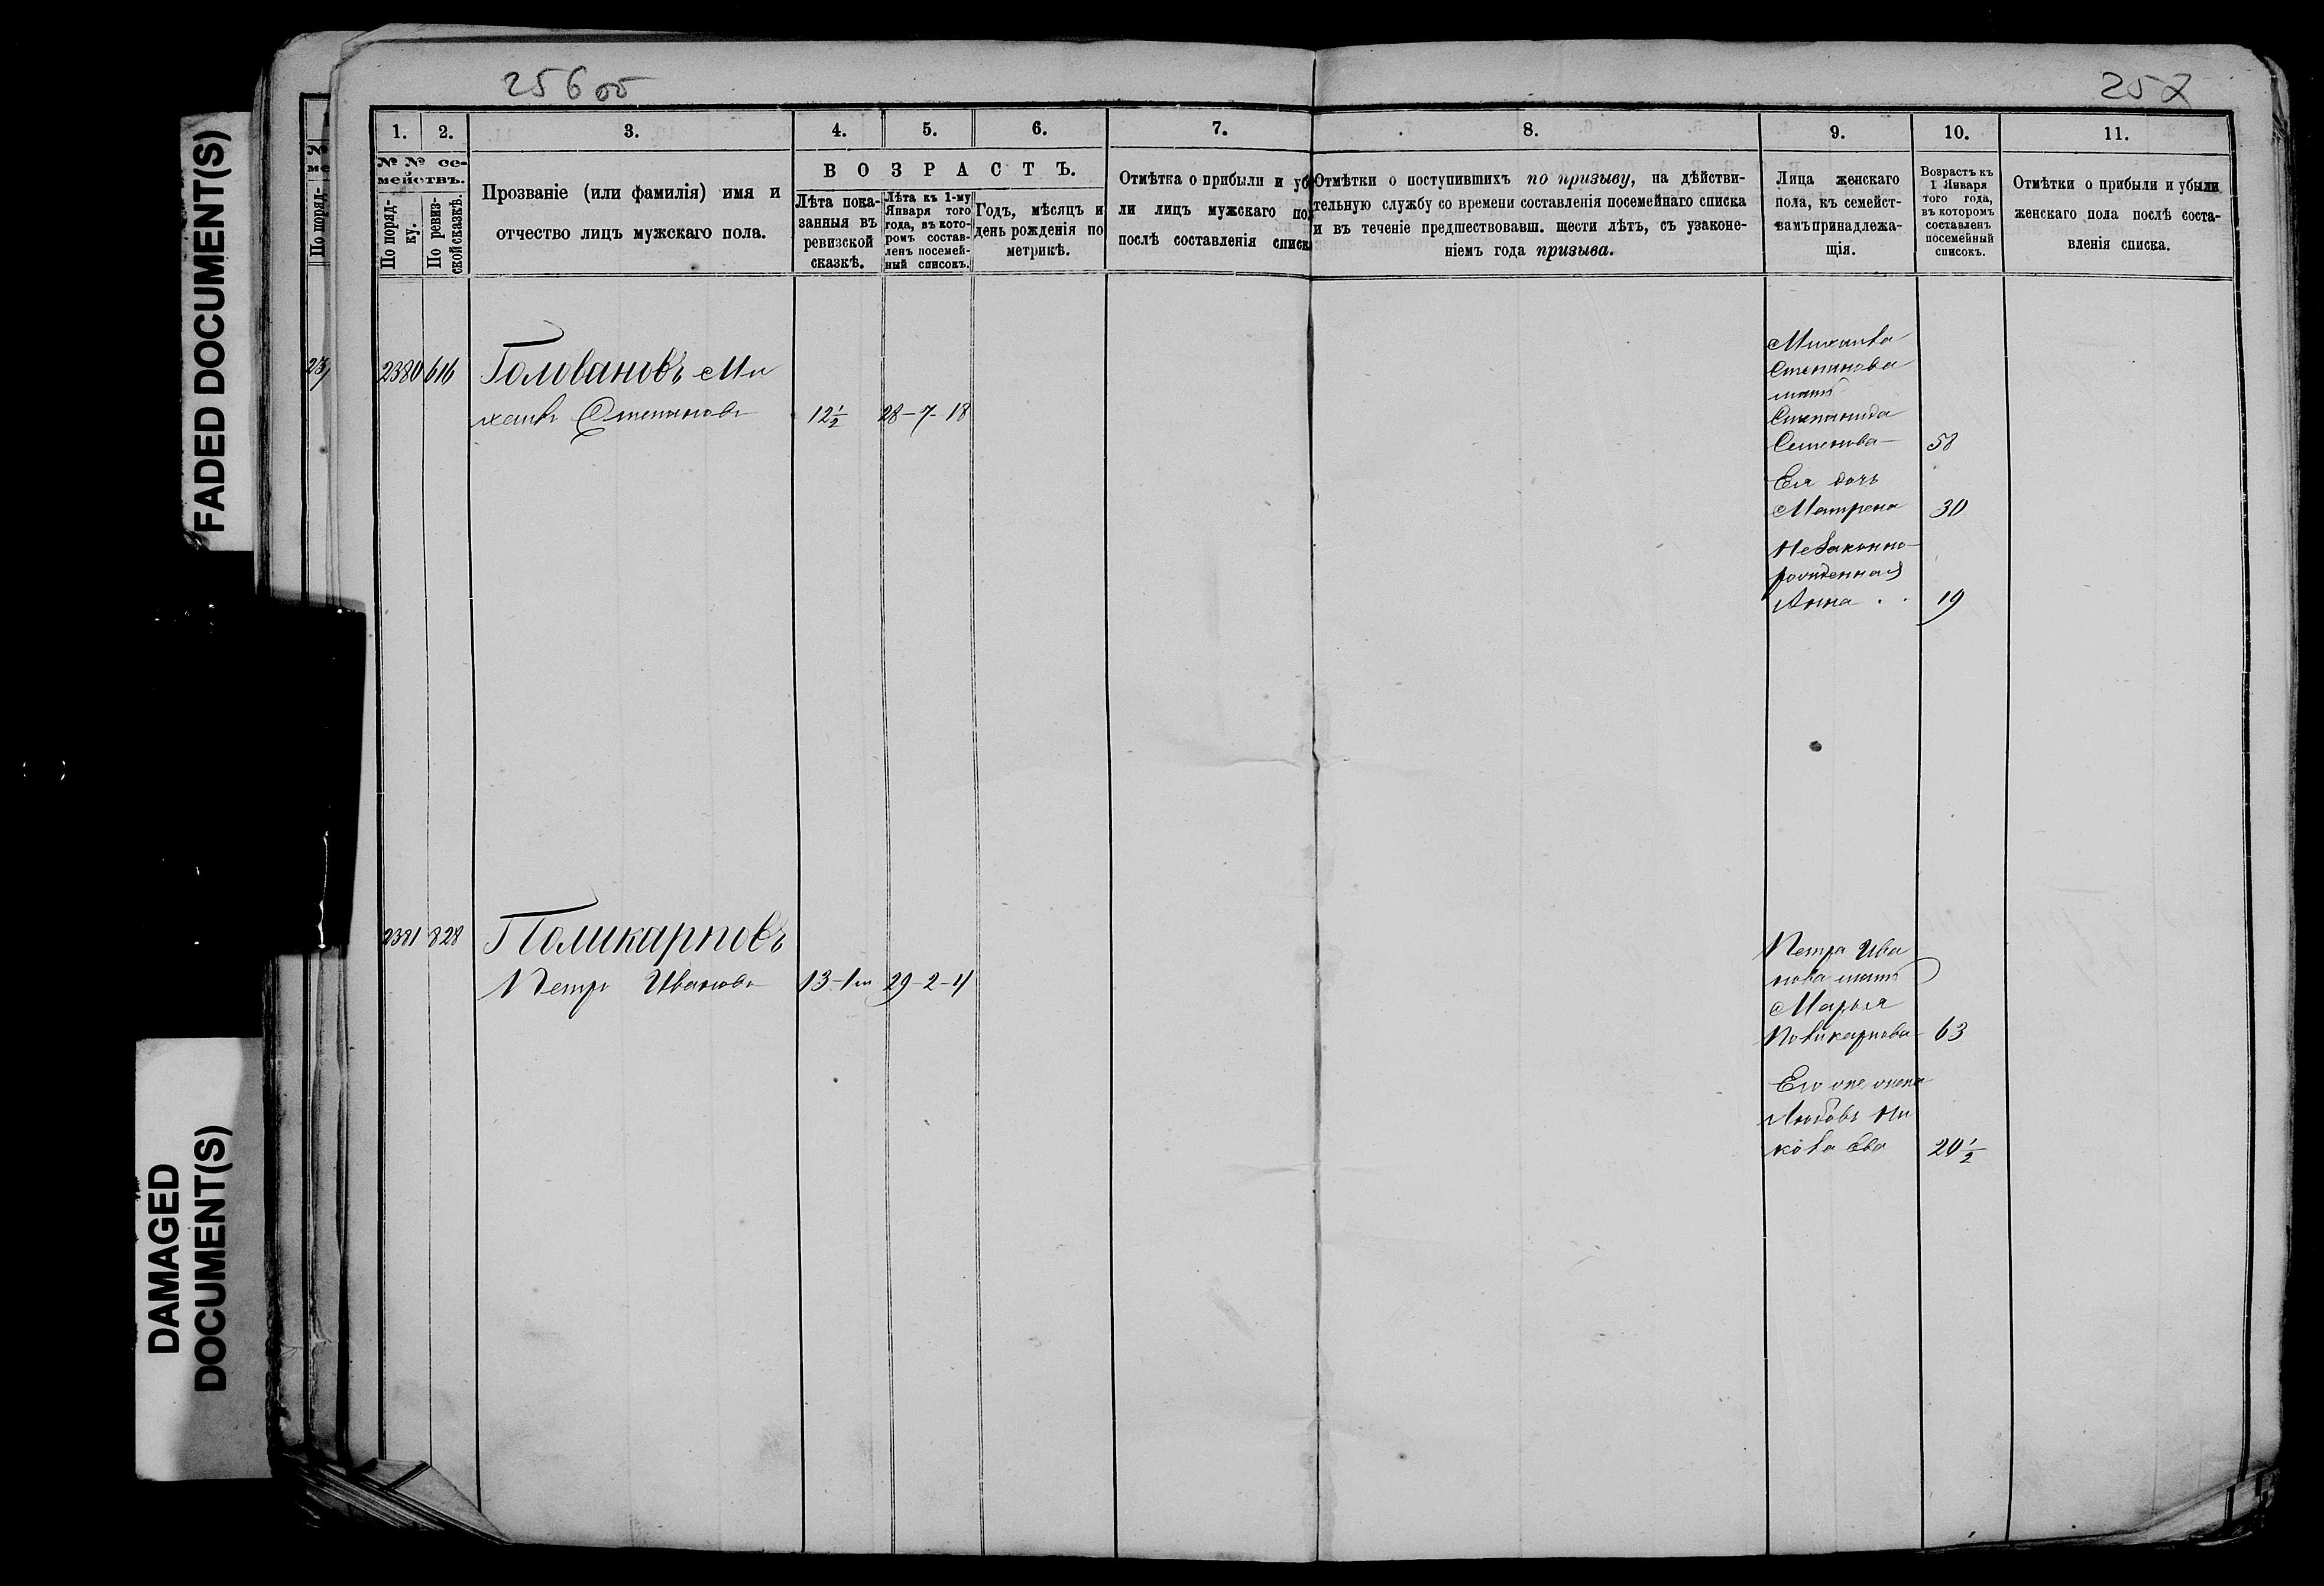 FADED DOCUMENT(S)
DAMAGED
DOCUMENT(S)
256 об
257
1. 2. 3. 4. 5. 6. 7. 8. 9. 10. 11.
№ № се-
мействъ.
По поряд-
ку.
По ревиз-
ской сказкѣ.
Прозваніе (или фамилія) имя и
отчество лицъ мужскаго пола.
ВОЗРАСТЪ.
Лѣта пока-
занныя въ
ревизской
сказкѣ.
Лѣта къ 1-му
Января того
года, въ кото-
ромъ состав-
ленъ посемей-
ный списокъ.
Годъ, мѣсяцъ и
день рожденія по
метрикѣ.
Отмѣтка о прибыли и уб
ли лицъ мужскаго по
послѣ составленія списк
Отмѣтки о поступившихъ по призыву, на дѣйстви-
тельную службу со времени составленія посемейнаго списка
и въ теченіе предшествовавш. шести лѣтъ, съ узаконе-
ніемъ года призыва.
Лица женскаго
пола, къ семейст-
вамъ принадлежа-
щія.
Возрастъ къ
1 Января
того года,
въ которомъ
составленъ
посемейный
списокъ.
Отмѣтки о прибыли и убыли
женскаго пола послѣ соста-
вленія списка.
2380 616 Головановъ Ми
хаилъ Степановъ 12½ 28-7-18
Михаила
Степанова
мать
Степанида
Семенова 58
Ея дочь
Матрена 30
Незаконно-
рожденная
Анна . . 19
2381 828 Поликарповъ
Петръ Ивановъ 13-1м 29-2-4
Петра Ива
нова мать
Марья
Поликарпова 63
Его же жена
Любовь Ни
колаева 20½